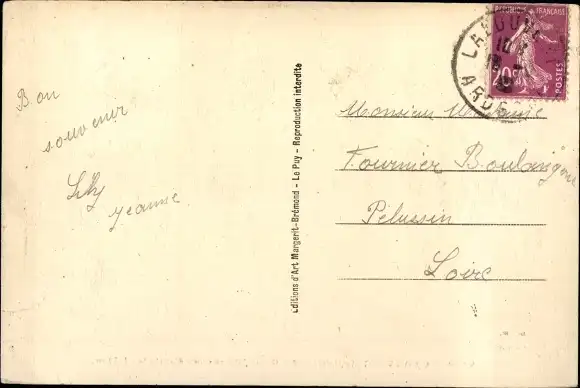 Bon
souvenir
Lily
Jeanne
Editions d'Art Margerit-Brémond - Le Puy - Reproduction interdite
REPUBLIQUE FRANÇAISE
20c
POSTES
ARDE
Monsieur
Fournier Boulangerie
Pélussin
Loire